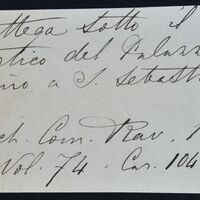 ttega sotto il
tico del Palazz
no a S. Sebasti
ch. Com. Rav.
Vol. 74. Car. 104